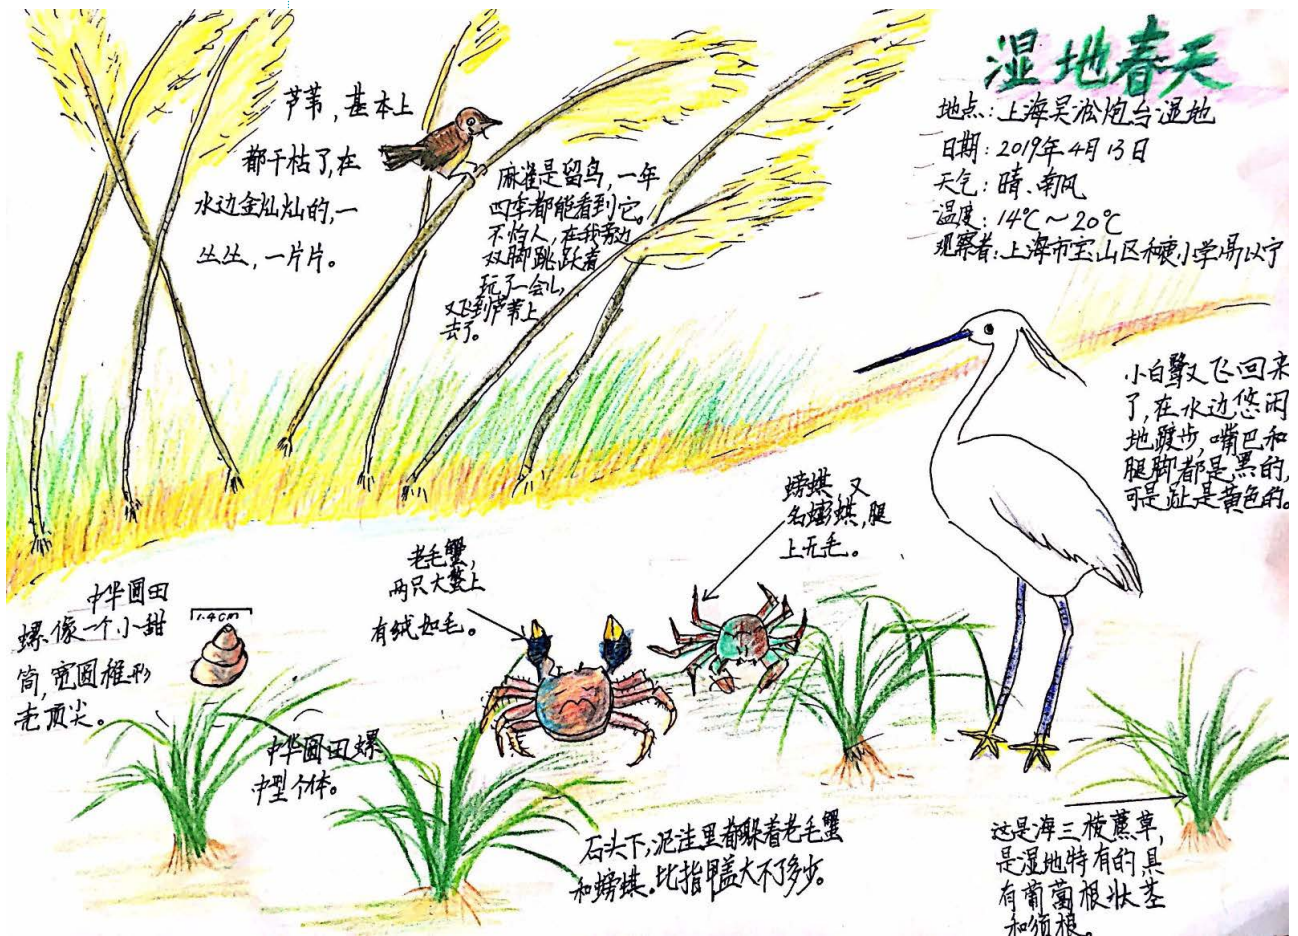 湿地春天
地点:上海吴淞炮台湿地
日期:2019年4月13日
天气:晴、南风
温度:14℃~20℃
观察者:上海市宝山区和衷小学易以宁
芦苇,基本上
都干枯了,在
水边金灿灿的,一
丛丛,一片片。
麻雀是留鸟,一年
四季都能看到它。
不怕人,在我旁边
双脚跳跃着
玩了一会儿,
又飞到芦苇上
去了。
小白鹭又飞回来
了,在水边悠闲
地踱步,嘴巴和
腿脚都是黑的,
可是趾是黄色的。
螃蜞,又
名蟛蜞,腿
上无毛。
老毛蟹,
两只大螯上
有绒如毛。
中华圆田
螺像一个小甜
筒,宽圆椎形
壳顶尖。
1.4cm
中华圆田螺
中型个体。
石头下,泥洼里都躲着老毛蟹
和螃蜞。比指甲盖大不了多少。
这是海三棱藨草,
是湿地特有的具
有葡萄根状茎
和须根。